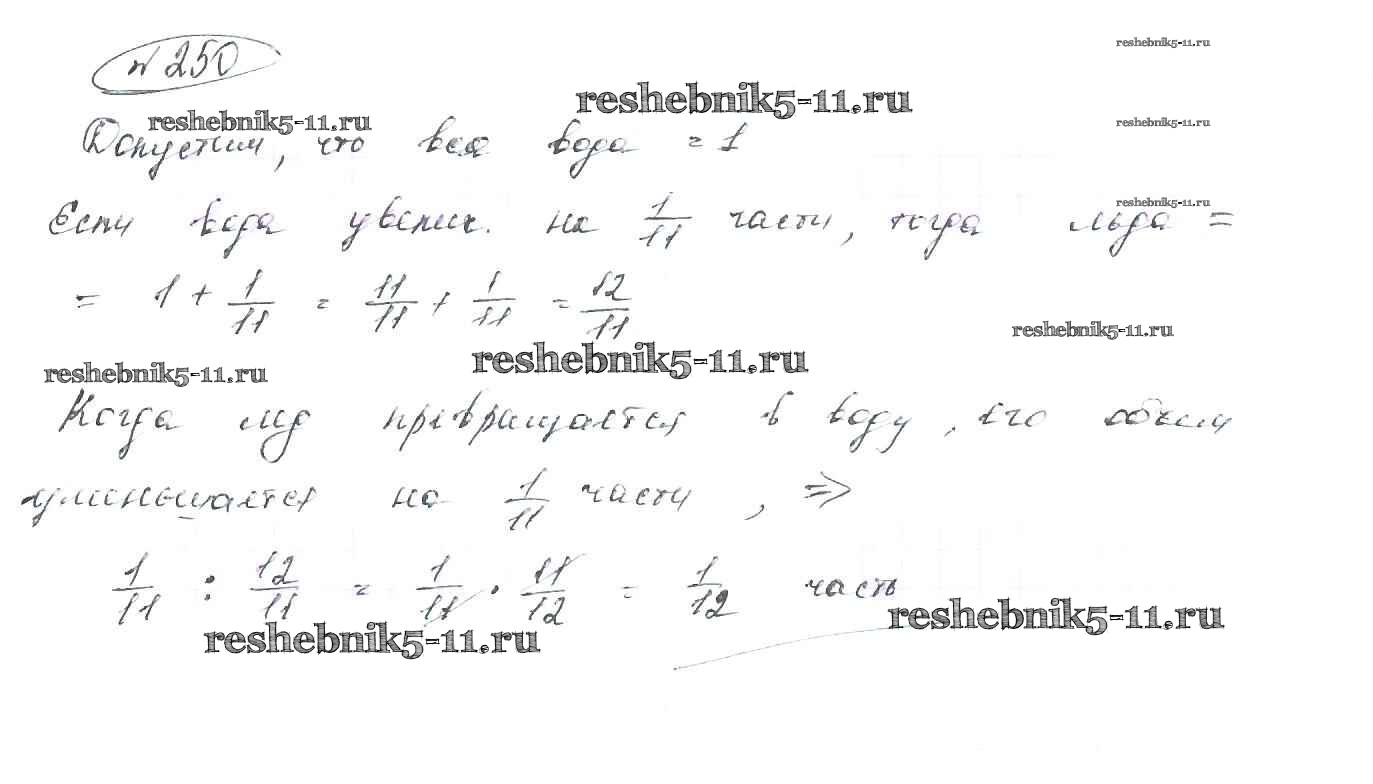 № 250
reshebnik5-11.ru
reshebnik5-11.ru
reshebnik5-11.ru
Допустим, что вся вода = 1
reshebnik5-11.ru
reshebnik5-11.ru
Если вода увелич. на 1/11 части, тогда льда =
= 1 + 1/11 = 11/11 + 1/11 = 12/11
reshebnik5-11.ru
reshebnik5-11.ru
reshebnik5-11.ru
Когда лёд превращается в воду, его объем
уменьшается на 1/11 части, ⇒
1/11 : 12/11 = 1/11 · 11/12 = 1/12 часть
reshebnik5-11.ru
reshebnik5-11.ru